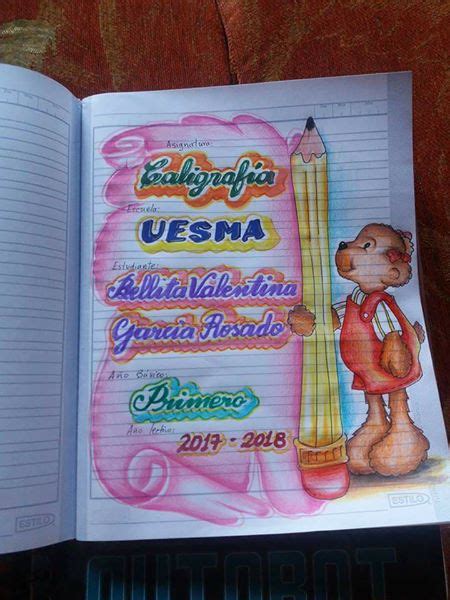 Asignatura:
Caligrafía
Escuela:
UESMA
Estudiante:
Bellita Valentina
García Rosado
Año Básico:
Primero
Año lectivo:
2017 - 2018
ESTILO
ESTILO
OUTOBOT